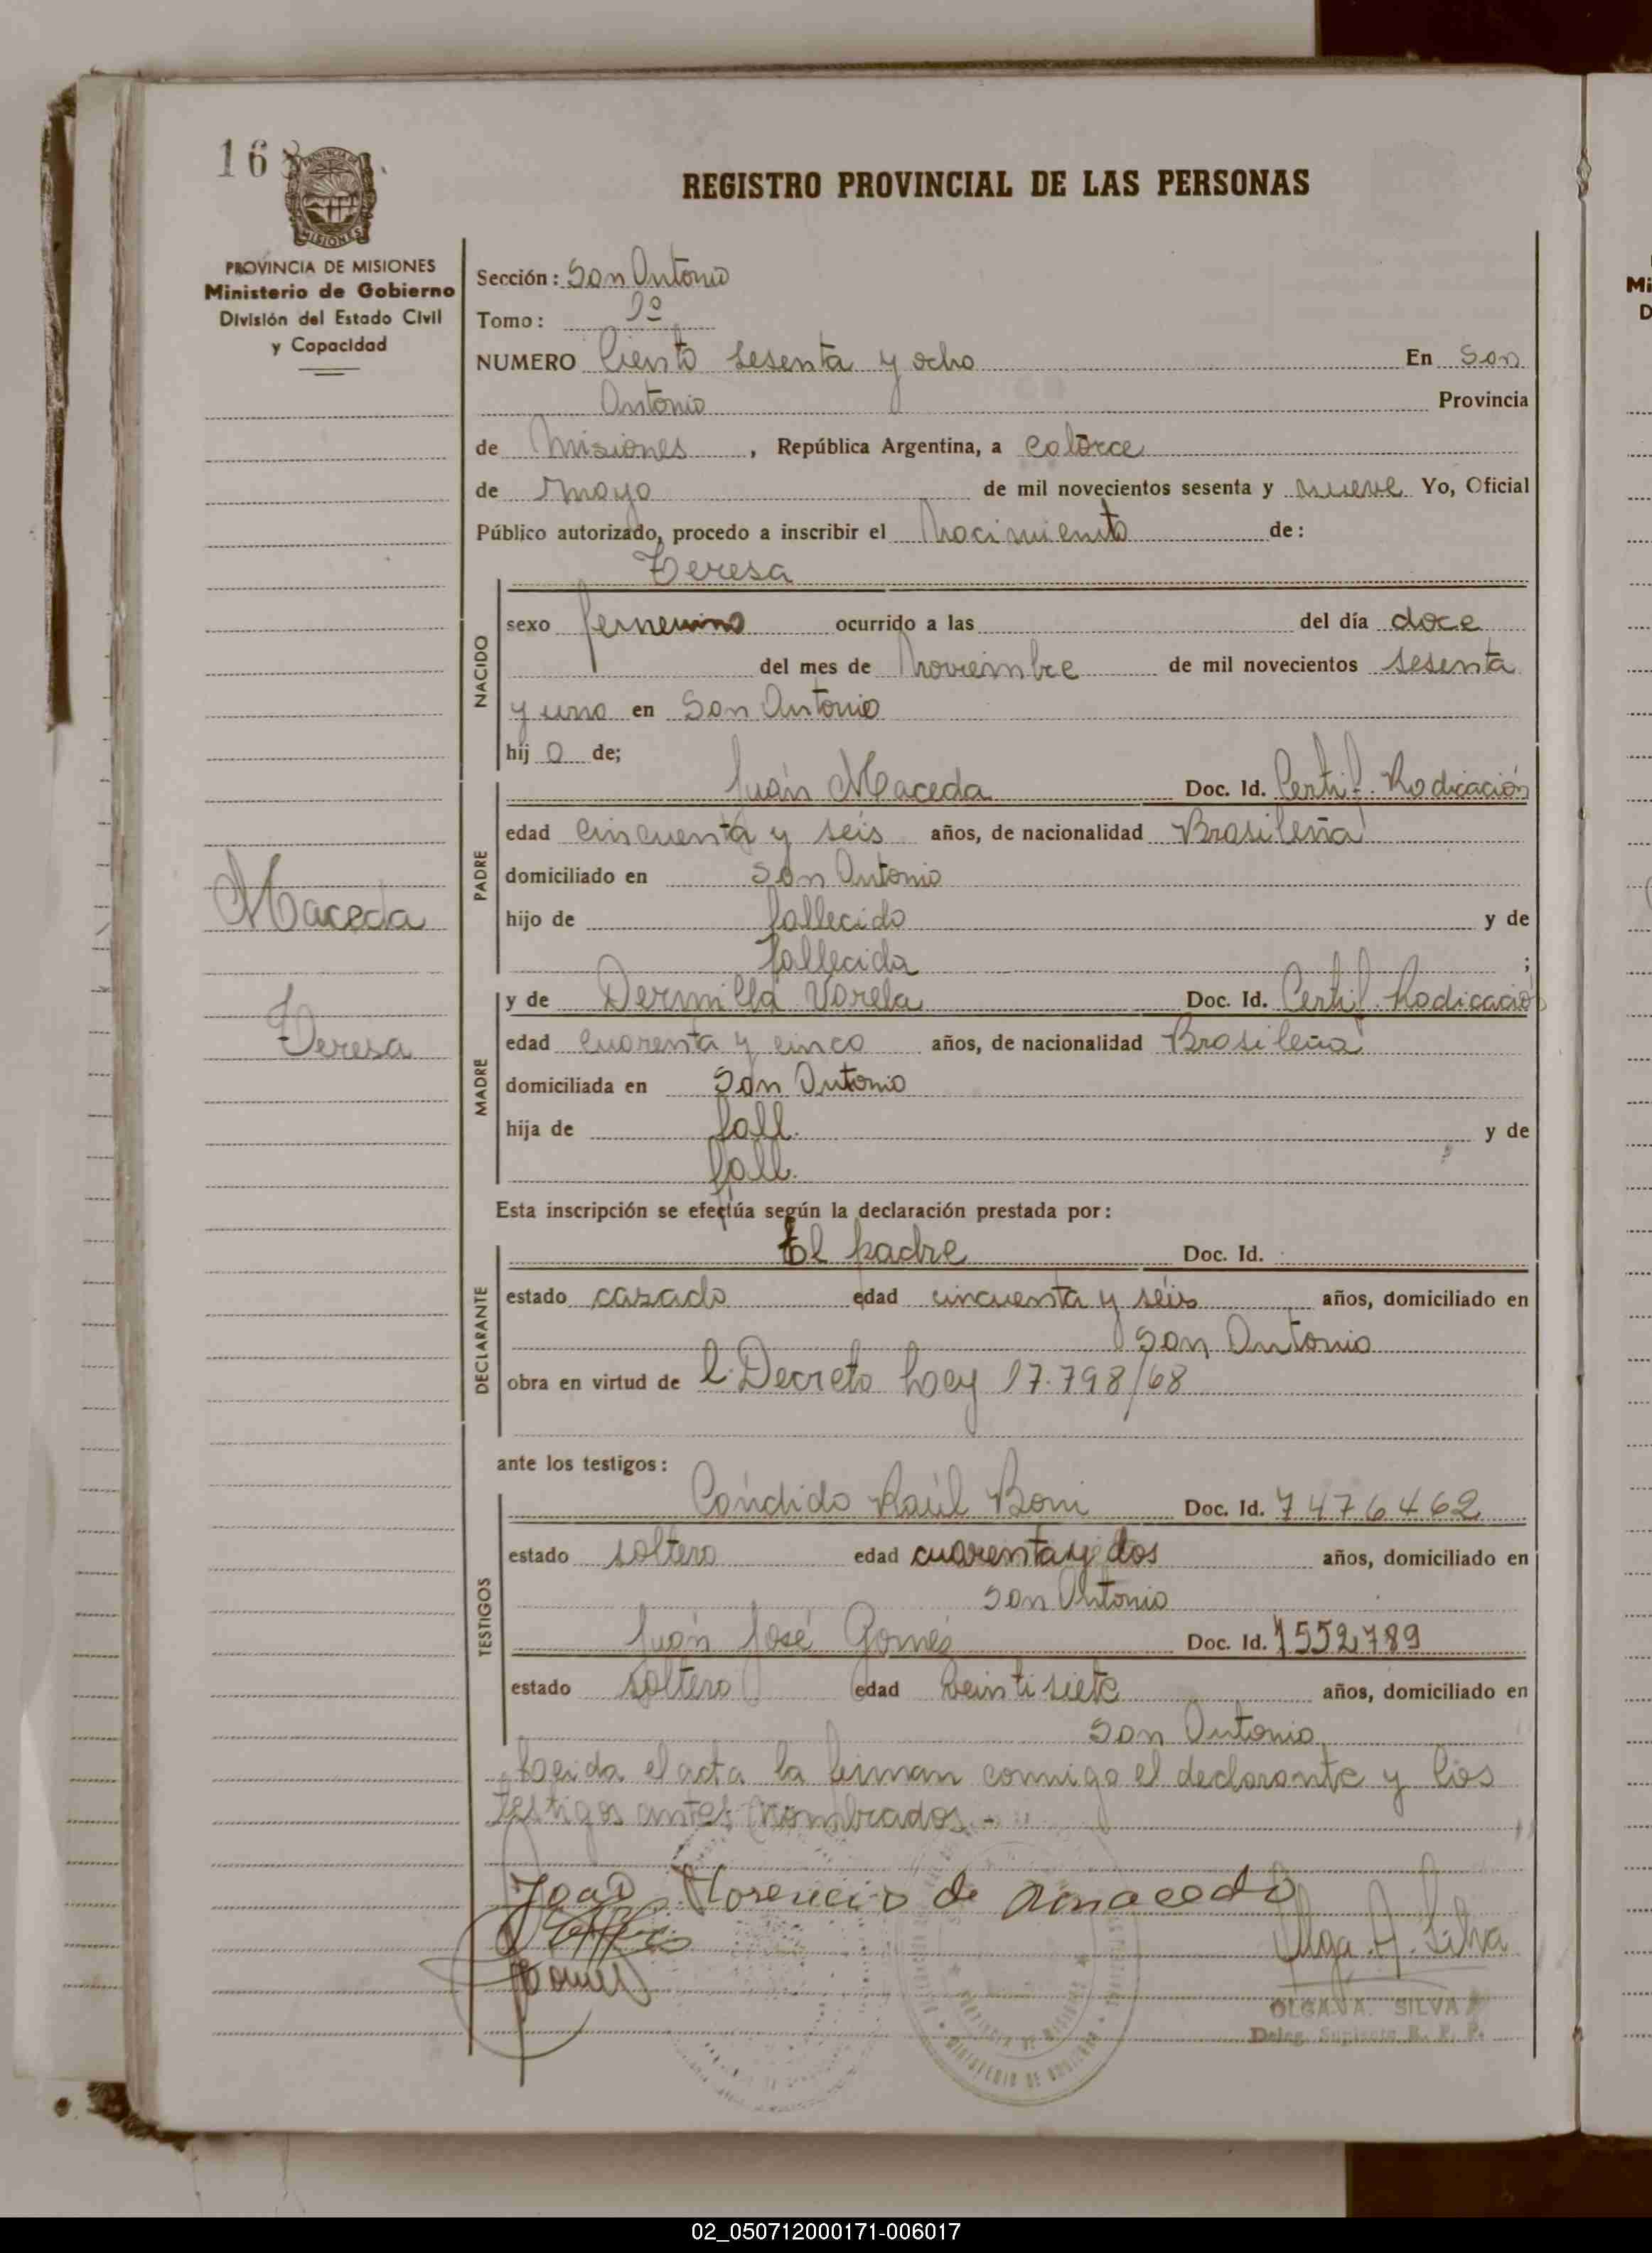 168
PROVINCIA DE
MISIONES
REGISTRO PROVINCIAL DE LAS PERSONAS
PROVINCIA DE MISIONES
Ministerio de Gobierno
División del Estado Civil
y Capacidad
Sección: San Antonio
Tomo: 1º
NUMERO Ciento sesenta y ocho En San
Antonio Provincia
de Misiones, República Argentina, a catorce
de mayo de mil novecientos sesenta y nueve Yo, Oficial
Público autorizado, procedo a inscribir el Nacimiento de:
Teresa
NACIDO
sexo femenino ocurrido a las del día doce
del mes de Noviembre de mil novecientos sesenta
y uno en San Antonio
hij a de;
PADRE
Juán Maceda Doc. Id. Certif. Radicación
edad cincuenta y seis años, de nacionalidad Brasileña
domiciliado en San Antonio
hijo de fallecido y de
fallecida ;
Maceda
Teresa
MADRE
y de Dermilla Varela Doc. Id. Certif. Radicació
edad cuarenta y cinco años, de nacionalidad Brasileña
domiciliada en San Antonio
hija de fall. y de
fall.
Esta inscripción se efectúa según la declaración prestada por:
DECLARANTE
El padre Doc. Id.
estado casado edad cincuenta y séis años, domiciliado en
San Antonio
obra en virtud de l. Decreto Ley 17.798/68
ante los testigos:
TESTIGOS
Cándido Raúl Boni Doc. Id. 7476462
estado soltero edad cuarenta y dos años, domiciliado en
San Antonio
Juán José Gomés Doc. Id. 7552789
estado soltero edad veinti siete años, domiciliado en
San Antonio
Leída el acta la firman conmigo el declarante y los
testigos antes nombrados.-
Joao Florencio de Amacedo
Olga A. Silva
Gomes
OLGA A. SILVA
Deleg. Suplente R. P. P.
PROVINCIA DE MISIONES
MINISTERIO DE GOBIERNO
Mi
D
02_050712000171-006017